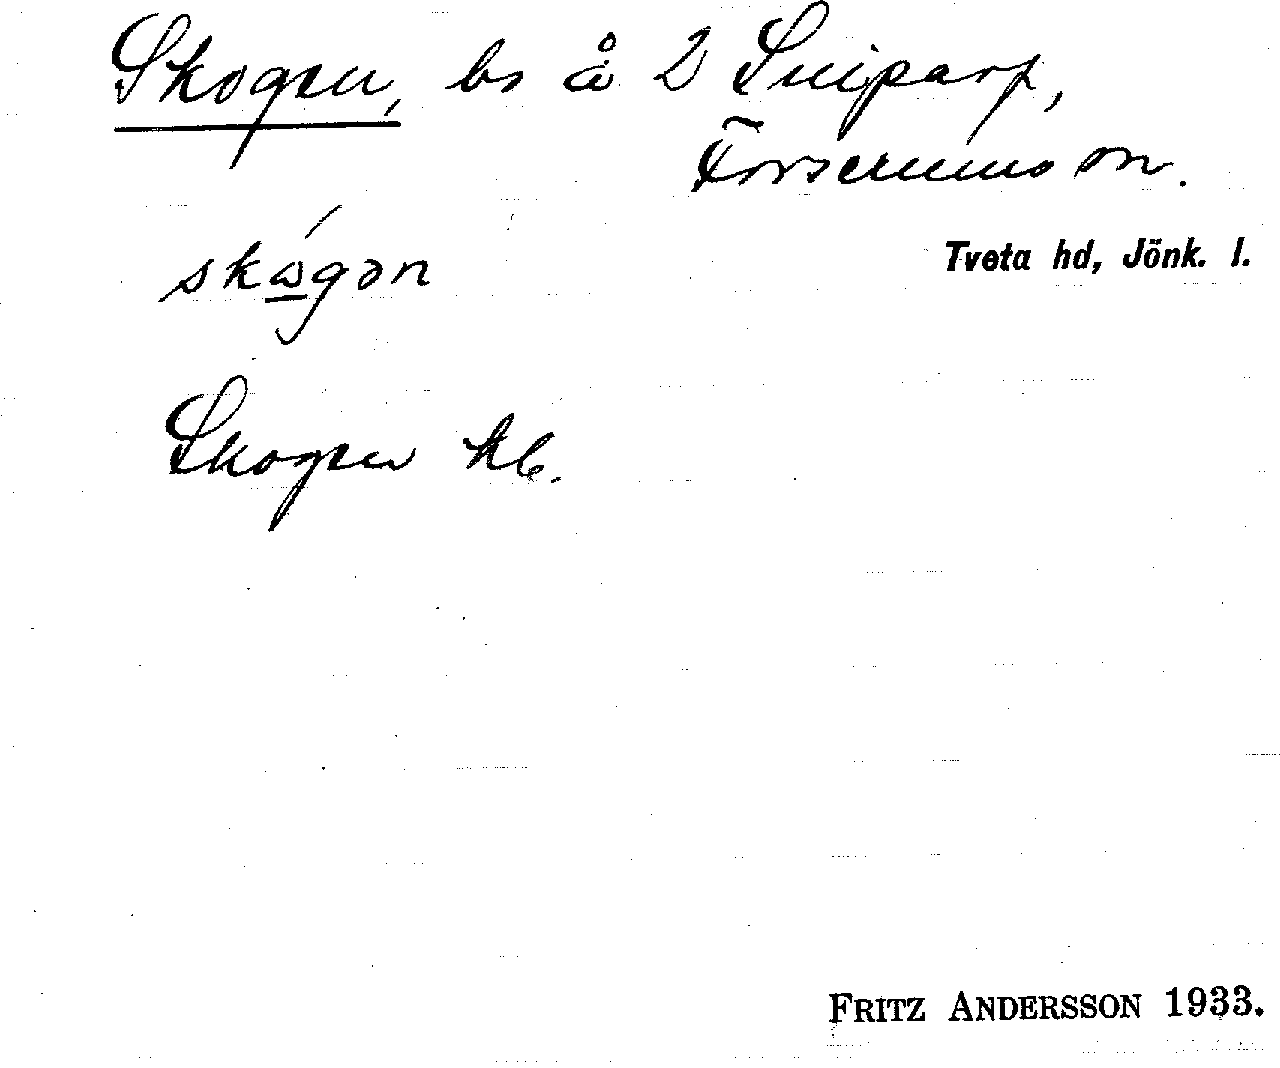 Skogen, bs å 2 Sniparp,
Forserums sn.
Tveta hd, Jönk. l.
skɷgən
Skogen kb.
FRITZ ANDERSSON 1933.